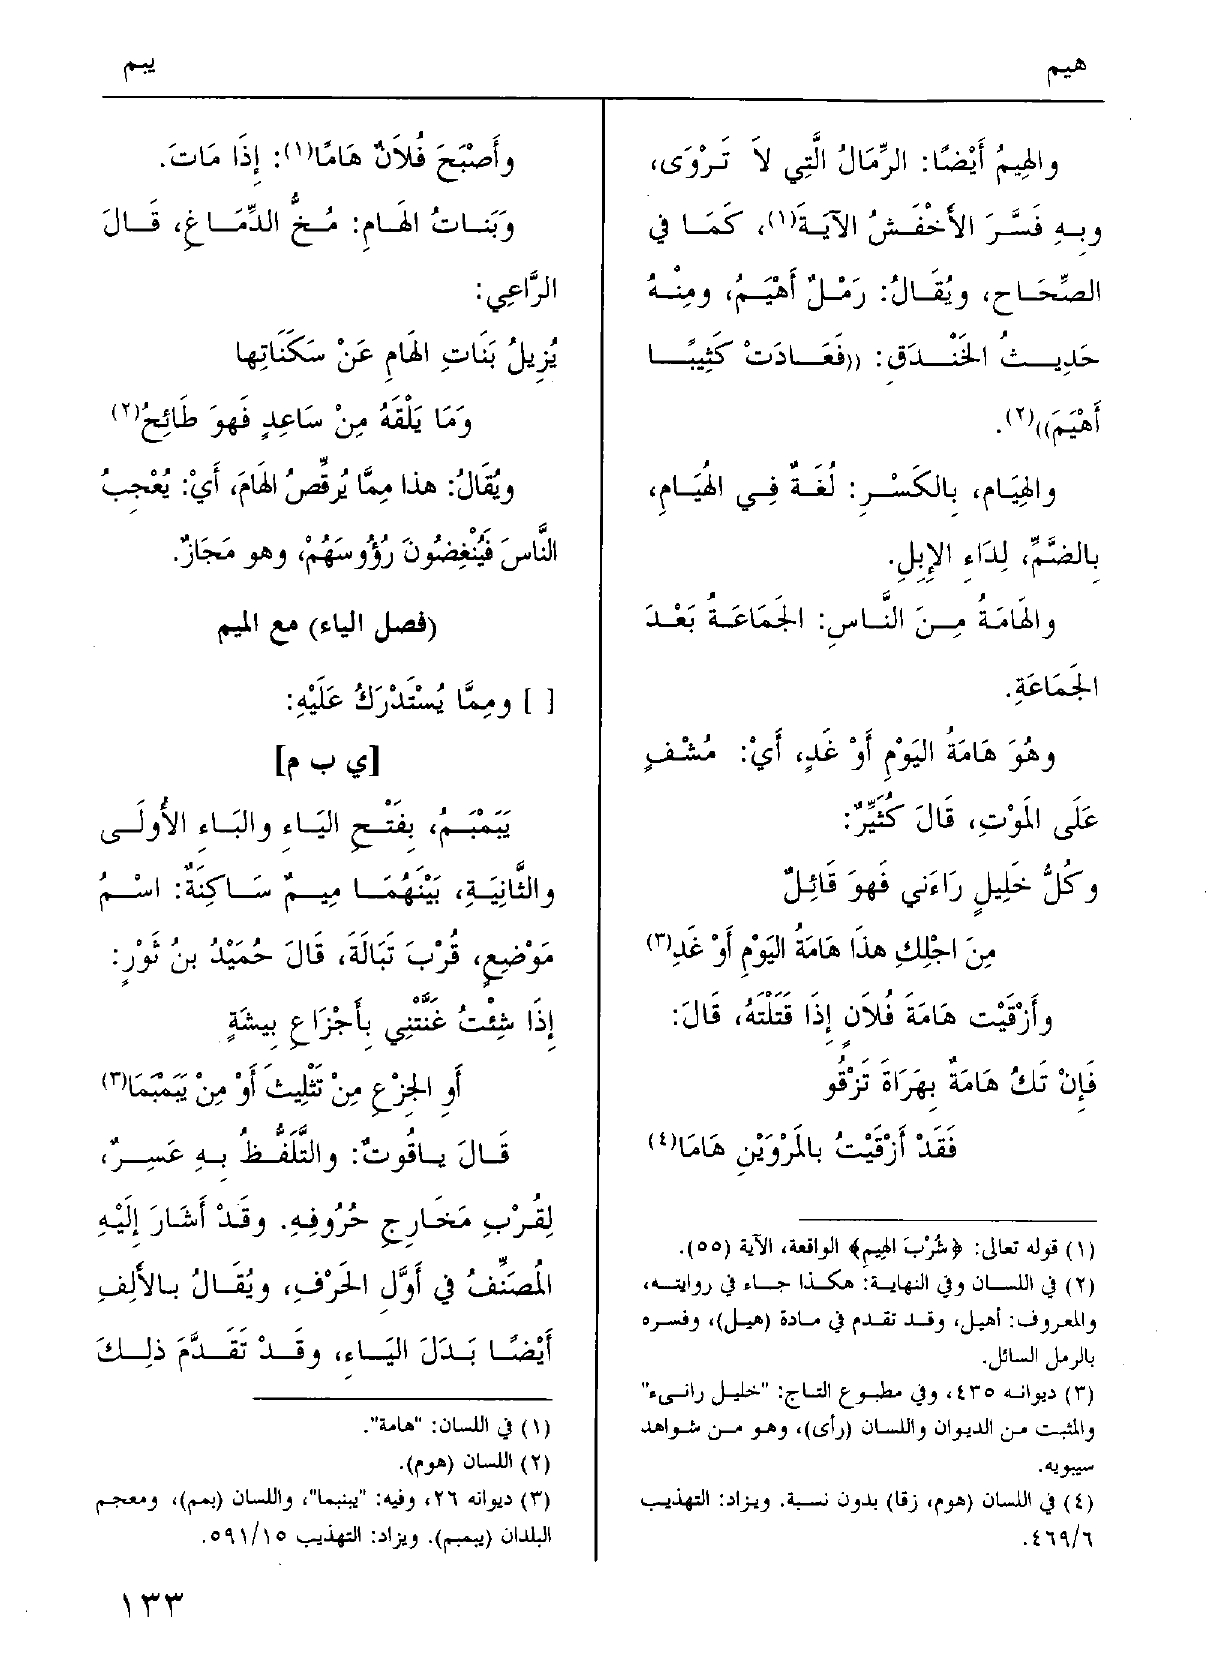 هيم
يبم
والهِيمُ أَيْضًا: الرِّمَالُ الَّتِي لاَ تَرْوَى،
وبِهِ فَسَّرَ الأَخْفَشُ الآيَةَ(١)، كَمَا في
الصِّحَاحِ، ويُقَالُ: رَمْلٌ أَهْيَمُ، ومِنْهُ
حَدِيثُ الخَنْدَقِ: ((فَعَادَتْ كَثِيبًا
أَهْيَمَ))(٢).
والهِيَام، بِالكَسْرِ: لُغَةٌ فِي الهُيَامِ،
بِالضَّمِّ، لِدَاءِ الإِبِلِ.
والهَامَةُ مِنَ النَّاسِ: الجَمَاعَةُ بَعْدَ
الجَمَاعَةِ.
وهُوَ هَامَةُ اليَوْمِ أَوْ غَدٍ، أَيْ: مُشْفٍ
عَلَى المَوْتِ، قَالَ كُثَيِّرٌ:
وكُلُّ خَلِيلٍ رَاءَني فَهوَ قَائِلٌ
مِنَ اجْلِكِ هذَا هَامَةُ اليَوْمِ أَوْ غَدِ(٣)
وأَزْقَيْت هَامَةَ فُلاَنٍ إِذَا قَتَلْتَهُ، قَالَ:
فَإِنْ تَكُ هَامَةٌ بِهَرَاةَ تَزْقُو
فَقَدْ أَزْقَيْتُ بالمَرْوَيْنِ هَامَا(٤)
(١) قوله تعالى: ﴿شُرْبَ الهِيمِ﴾ الواقعة، الآية (٥٥).
(٢) في اللسان وفي النهاية: هكذا جاء في روايته،
والمعروف: أهيل، وقد تقدم في مادة (هيل)، وفسره
بالرمل السائل.
(٣) ديوانه ٤٣٥، وفي مطبوع التاج: "خليل رانىء"
والمثبت من الديوان واللسان (رأى)، وهو من شواهد
سيبويه.
(٤) في اللسان (هوم، زقا) بدون نسبة. ويزاد: التهذيب
٤٦٩/٦.
وأَصْبَحَ فُلاَنٌ هَامًا(١): إِذَا مَاتَ.
وَبَنَاتُ الهَامِ: مُخُّ الدِّمَاغِ، قَالَ
الرَّاعِي:
يُزِيلُ بَنَاتِ الهَامِ عَنْ سَكَنَاتِها
وَمَا يَلْقَهُ مِنْ سَاعِدٍ فَهوَ طَائِحُ(٢)
ويُقَالُ: هذا مِمَّا يُرقِّصُ الهَامَ، أَيْ: يُعْجِبُ
النَّاسَ فَيُنْغِضُونَ رُؤُوسَهُمْ، وهو مَجَازٌ.
(فصل الياء) مع الميم
[ ] ومِمَّا يُسْتَدْرَكُ عَلَيْهِ:
[ي ب م]
يَبَمْبَمُ، بِفَتْحِ اليَاءِ والبَاءِ الأُولَى
والثَّانِيَةِ، بَيْنَهُمَا مِيمٌ سَاكِنَةٌ: اسْمُ
مَوْضِعٍ، قُرْبَ تَبَالَةَ، قَالَ حُمَيْدُ بنُ ثَوْرٍ:
إِذَا شِئْتُ غَنَّتْنِي بِأَجْزَاعِ بِيشَةٍ
أَوِ الجِزْعِ مِنْ تَثْلِيثَ أَوْ مِنْ يَبَمْبَمَا(٣)
قَالَ ياقُوتٌ: والتَّلَفُّظُ بِهِ عَسِرٌ،
لِقُرْبِ مَخَارِجِ حُرُوفِهِ. وقَدْ أَشَارَ إِلَيْهِ
المُصَنِّفُ في أَوَّلِ الحَرْفِ، ويُقَالُ بالأَلِفِ
أَيْضًا بَدَلَ اليَاءِ، وقَدْ تَقَدَّمَ ذلِكَ
(١) في اللسان: "هامة".
(٢) اللسان (هوم).
(٣) ديوانه ٢٦، وفيه: "يبنبما"، واللسان (بمم)، ومعجم
البلدان (يبمبم). ويزاد: التهذيب ٥٩١/١٥.
١٣٣